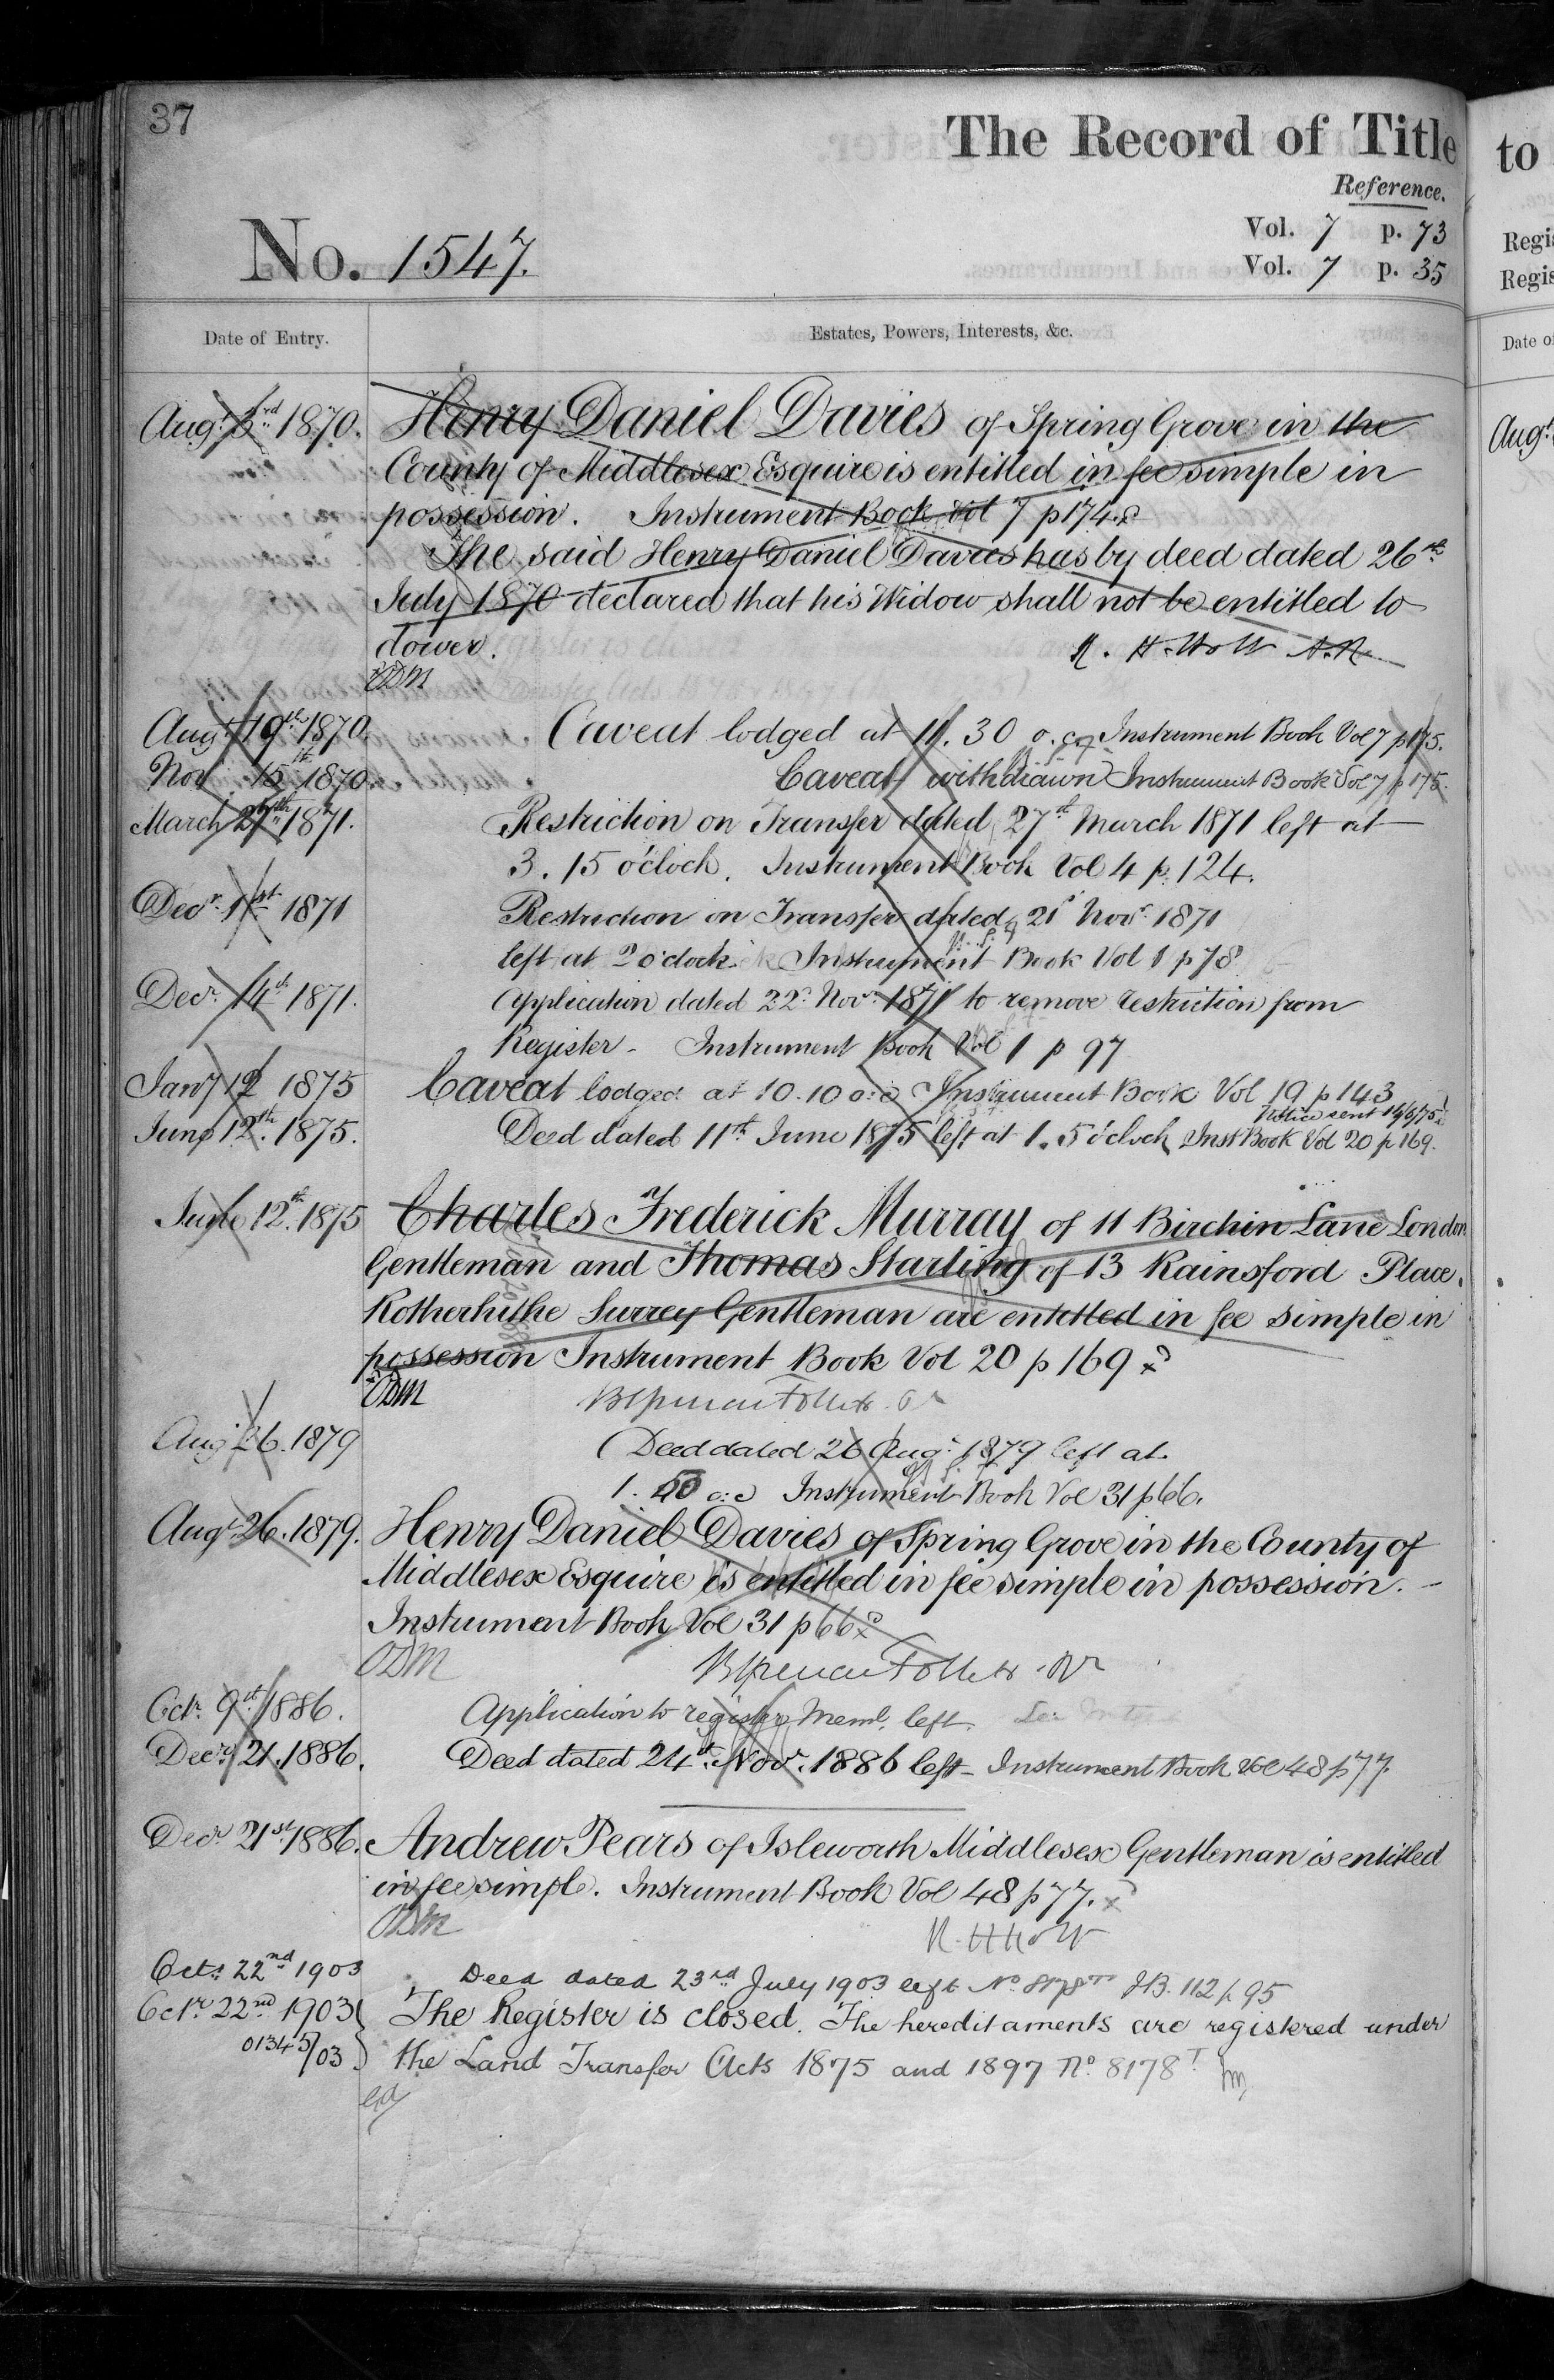 37
The Record of Title
Reference.
No. 1547.
Vol. 7 p. 73
Vol. 7 p. 35
Date of Entry.
Estates, Powers, Interests, &c.
Augt 3rd 1870. Henry Daniel Davies of Spring Grove in the
County of Middlesex Esquire is entitled in fee simple in
possession. Instrument Book Vol 7 p 174.
The said Henry Daniel Davies has by deed dated 26th
July 1870 declared that his Widow shall not be entitled to
dower. R. H. Holt A.R.
ODM
Augt 19th 1870. Caveat lodged at 11.30 o.c. Instrument Book Vol 7 p 175.
Novr 15th 1870. Caveat withdrawn Instrument Book Vol 7 p 175.
March 27th 1871. Restriction on Transfer dated 27th March 1871 left at
3.15 o'clock. Instrument Book Vol 4 p. 124.
Decr 1st 1871 Restriction on Transfer dated 21st Novr 1871
left at 2 o'clock. Instrument Book Vol 1 p 78
Decr 14th 1871. Application dated 22d Novr 1871 to remove restriction from
Register - Instrument Book Vol 1 p 97
Jany 12 1875 Caveat lodged at 10.10 o.c Instrument Book Vol 19 p 143
Notice sent 14/6/75
June 12th 1875. Deed dated 11th June 1875 left at 1.5 o'clock Inst Book Vol 20 p 169.
June 12th 1875 Charles Frederick Murray of 11 Birchin Lane London
Gentleman and Thomas Starling of 13 Rainsford Place,
Rotherhithe Surrey Gentleman are entitled in fee simple in
possession Instrument Book Vol 20 p 169
ODM
Augt 26. 1879 Deed dated 26 Augt 1879 left at
1.50 o:c Instrument Book Vol 31 p 66.
Augt 26. 1879. Henry Daniel Davies of Spring Grove in the County of
Middlesex Esquire is entitled in fee simple in possession. -
Instrument Book Vol 31 p 66
ODM
Octr 9th 1886. Application to register Meml. left.
Decr 21. 1886. Deed dated 24th Novr. 1886 left - Instrument Book Vol 48 p 77.
Decr 21st 1886. Andrew Pears of Isleworth Middlesex Gentleman is entitled
in fee simple. Instrument Book Vol 48 p 77.
ODM R. H. Holt
Octr 22nd 1903 Deed dated 23rd July 1903 left No. 8178T I.B. 112 p 95
Octr 22nd 1903 The Register is closed. The hereditaments are registered under
01345/03 the Land Transfer Acts 1875 and 1897 No 8178T.
to
Regis
Regis
Date o
Augt